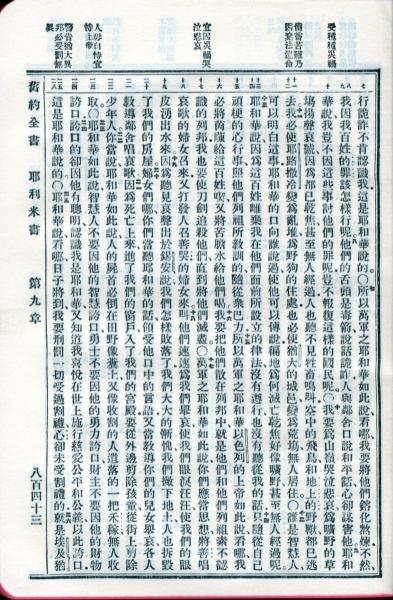 受種種災禍
備嘗苦難乃
因棄法違命
宜因災禍哭
泣悲哀
人毋自恃宜
恃主帝
警戒猶大異
邦必受罰無
異
行詭詐不肯認識我這是耶和華說的○所以萬軍之耶和華如此說看哪我要將他們鎔化熬煉不然
我因我百姓的罪該怎樣行呢他們的舌頭是毒箭說話詭詐人與鄰舍口說和平話心卻謀害他耶和
華說我豈不因這些事討他們的罪呢豈不報復這樣的國民呢○我要為山嶺哭泣悲哀為曠野的草
場揚聲哀號因為都已乾焦甚至無人經過人也聽不見牲畜鳴叫空中的飛鳥和地上的野獸都已逃
去我必使耶路撒冷變為亂堆為野狗的住處也必使猶大的城邑變為荒場無人居住○誰是智慧人
可以明白這事耶和華的口向誰說過使他可以傳說徧地為何滅亡乾焦好像曠野甚至無人經過呢
耶和華說因為這百姓離棄我在他們面前所設立的律法沒有遵行也沒有聽從我的話只隨從自己
頑梗的心行事照他們列祖所教訓的隨從衆巴力所以萬軍之耶和華以色列的上帝如此說看哪我
必將茵蔯給這百姓喫又將苦膽水給他們喝我要把他們散在列邦中就是他們和他們列祖素不認
識的列邦我也要使刀劍追殺他們直到將他們滅盡○萬軍之耶和華如此說你們應當思想將善唱
哀歌的婦女召來又打發人召善哭的婦女來叫他們速速為我們舉哀使我們眼淚汪汪使我們的眼
皮湧出水來因為聽見哀聲出於錫安說我們怎樣敗落了我們大大的慚愧我們撇下地土人也拆毀
了我們的房屋婦女們哪你們當聽耶和華的話領受他口中的言語又當教導你們的兒女舉哀各人
教導鄰舍唱哀歌因為死亡上來進了我們的窗戶入了我們的宮殿要從外邊剪除孩童從街上剪除
少年人你當說耶和華如此說人的屍首必倒在田野像糞土又像收割的人遺落的一把禾稼無人收
取○耶和華如此說智慧人不要因他的智慧誇口勇士不要因他的勇力誇口財主不要因他的財物
誇口誇口的卻因他有聰明認識我是耶和華又知道我喜悅在世上施行慈愛公平和公義以此誇口
這是耶和華說的○耶和華說看哪日子將到我要刑罰一切受過割禮心卻未受割禮的就是埃及猶
舊約全書 耶利米書 第九章 八百四十三